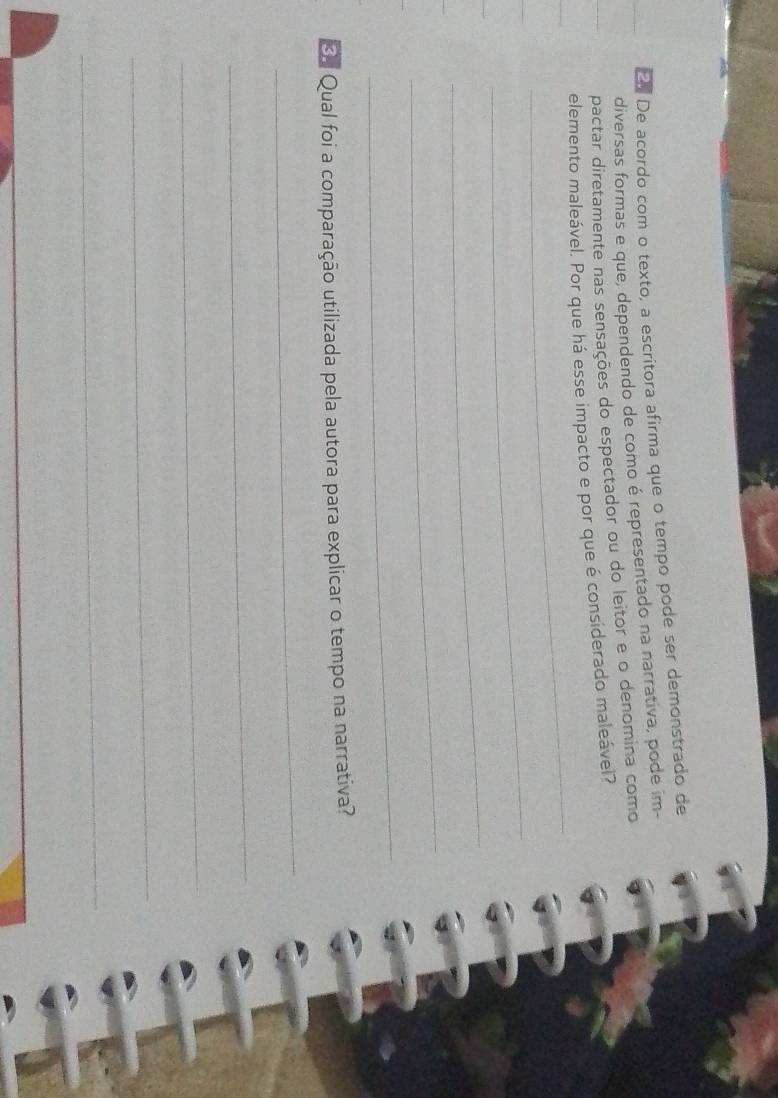 2. De acordo com o texto, a escritora afirma que o tempo pode ser demonstrado de
diversas formas e que, dependendo de como é representado na narrativa, pode im-
pactar diretamente nas sensações do espectador ou do leitor e o denomina como
elemento maleável. Por que há esse impacto e por que é considerado maleável?
3. Qual foi a comparação utilizada pela autora para explicar o tempo na narrativa?